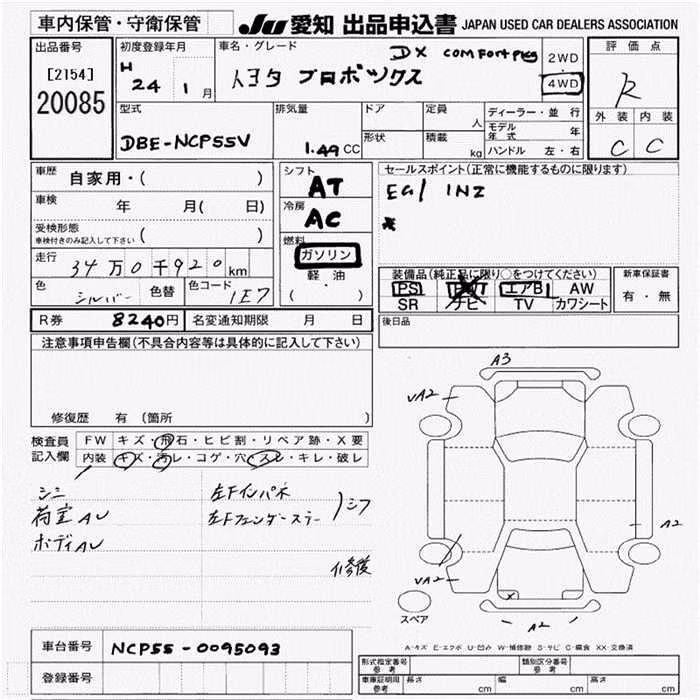 車内保管・守衛保管
JU 愛知 出品申込書 JAPAN USED CAR DEALERS ASSOCIATION
出品番号
[2154]
20085
初度登録年月
H 24 年 1 月
車名・グレード
DX COMFORT pkg
トヨタ プロボックス
2WD
4WD
評価点
R
外装 内装
C C
型式
DBE-NCP55V
排気量
1.49 CC
ドア
形状
定員 人
積載 kg
ディーラー・並行
モデル年式 年
ハンドル 左・右
車歴 自家用・( )
車検 年 月( 日)
受検形態
車検付きのみ記入して下さい ( )
走行 34万0千920km
色 シルバー 色替 色コード 1E7
シフト
AT
冷房
AC
燃料
ガソリン
軽油
( ・ )
セールスポイント(正常に機能するものに限ります)
EG/ 1NZ
装備品(純正品に限り○をつけてください)
PS エアB AW
SR ナビ TV カワシート
新車保証書
有・無
R券 8240円 名変通知期限 月 日
後日品
注意事項申告欄(不具合内容等は具体的に記入して下さい)
修復歴 有 (箇所
検査員
記入欄
FW キズ・飛石・ヒビ割・リペア跡・X要
内装 キズ・汚レ・コゲ・穴・スレ・キレ・破レ
シミ
荷室AU
ボディAU
左Fインパネ
左Fフェンダーステー
シフ
修復
A3
VA2
A2
VA2
X
A2
スペア
A-キズ E-エクボ U-凹み W-補修跡 S-サビ C-腐食 XX-交換済
車台番号 NCP55-0095093
登録番号
形式指定番号
参考
類別区分番号
参考
車庫証明用
参考
長さ cm 幅 cm 高さ cm